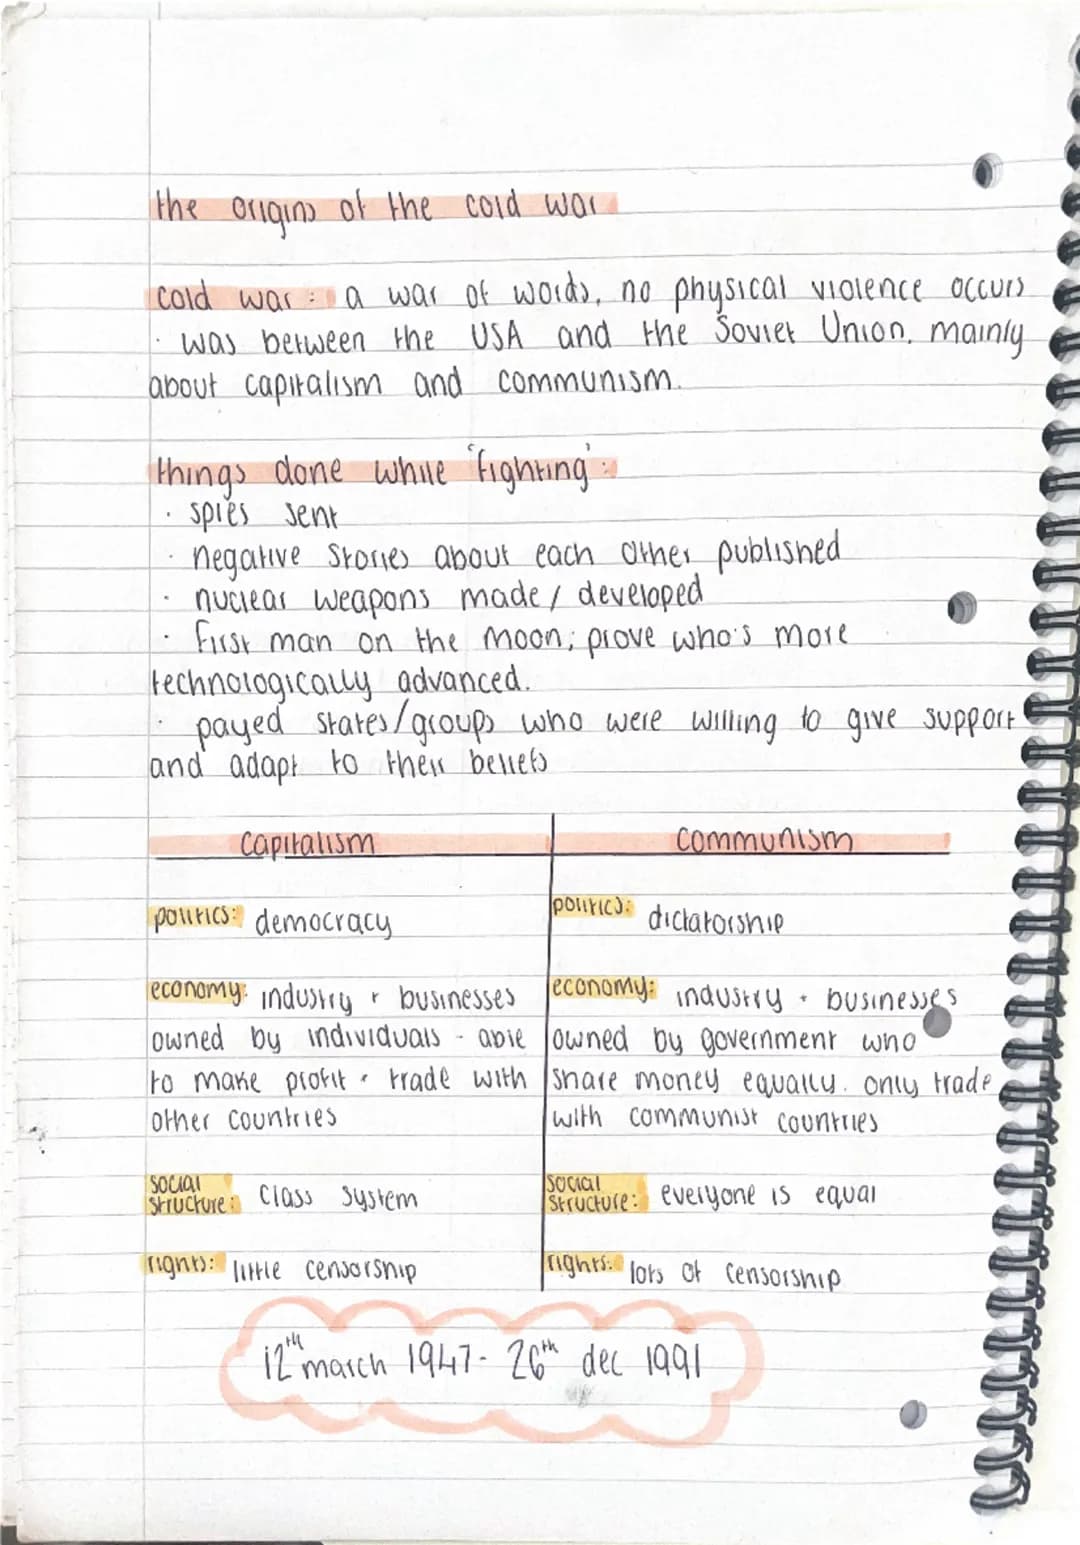 the origins of the cold war
cold war: a war of words, no physical violence occurs
· was between the USA and the Soviet Union, mainly
about capitalism and communism.
things done while 'fighting':
· spies sent
· negative stories about each other published
· nuclear weapons made / developed
· first man on the moon; prove who's more
technologically advanced.
· payed states/groups who were willing to give support
and adapt to their beliefs
capitalism
politics: democracy
economy: industry + businesses
owned by individuals - able
to make profit + trade with
other countries
social
structure: class system
rights: little censorship
communism
politics: dictatorship
economy: industry + businesses
owned by government who
share money equally. only trade
with communist countries
social
structure: everyone is equal
rights: lots of censorship
12th march 1947 - 26th dec 1991